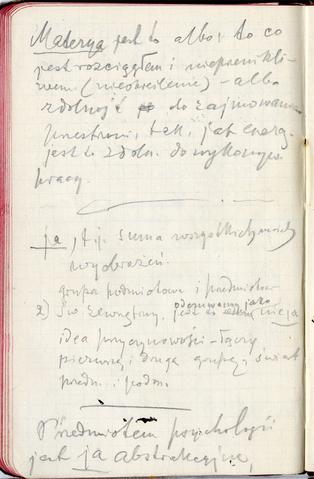 Materya jest to albo, to co
jest rozciągłem i nieprzenikli-
wem (nieokreślenie) - albo
zdolność do zajmowania
przestrzeni, tak, jak energ.
jest to zdoln. do wykonyw.
pracy.
ja, t.j. suma wszystkich moich
wyobrażeń.
grupa podmiotowa i przedmiotow.
2) św. zewnętrzny, jest to nieja
odczuwany jako
idea przyczynowości łączy
pierwszą i drugą grupę, świat
przedm. i podm.
Przedmiotem psychologii
jest ja abstrakcyjne,